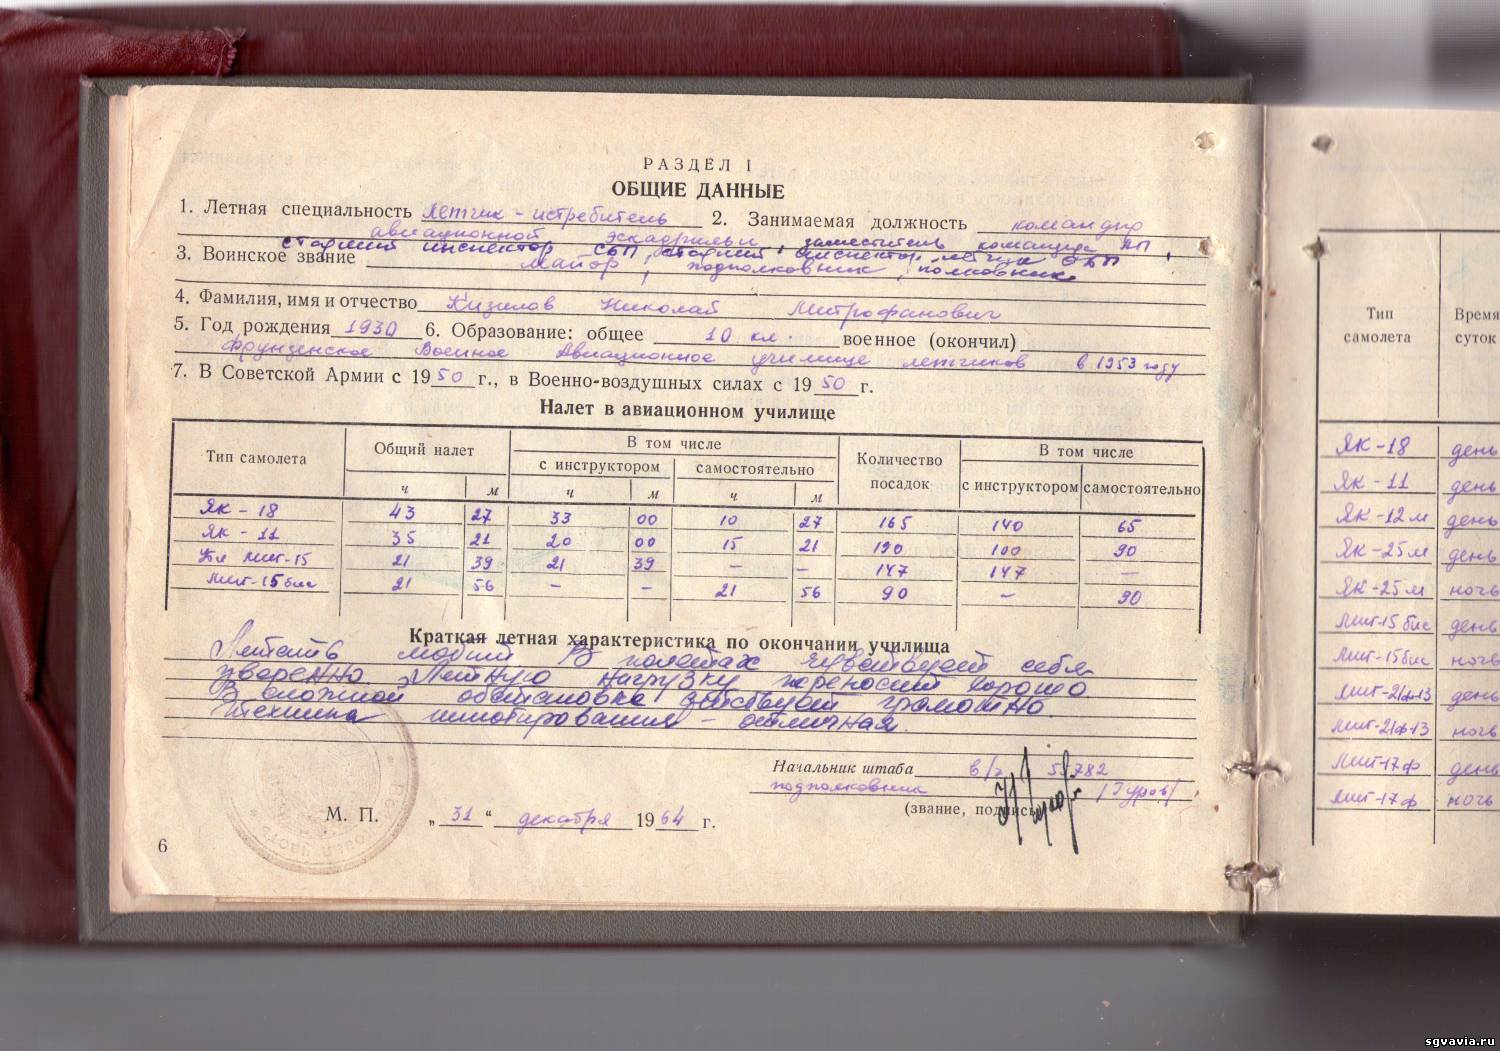 РАЗДЕЛ I
ОБЩИЕ ДАННЫЕ
1. Летная специальность летчик-истребитель 2. Занимаемая должность командир
авиационной эскадрильи, заместитель командира АП,
старший инспектор СБП, старший инспектор летчик ОБП
3. Воинское звание майор, подполковник, полковник
4. Фамилия, имя и отчество Кизилов Николай Митрофанович
5. Год рождения 1930 6. Образование: общее 10 кл. военное (окончил)
Фрунзенское Военное Авиационное училище летчиков в 1953 году
7. В Советской Армии с 1950 г., в Военно-воздушных силах с 1950 г.
Налет в авиационном училище
Тип самолета Общий налет В том числе Количество посадок В том числе
с инструктором самостоятельно с инструктором самостоятельно
ч м ч м ч м
Як-18 43 27 33 00 10 27 165 140 65
Як-11 35 21 20 00 15 21 190 100 90
Миг-15 21 39 21 39 – – 147 147 –
Миг-15бис 21 56 – – 21 56 90 – 90
Краткая летная характеристика по окончании училища
Летать любит. В полетах чувствует себя
уверенно. Летную нагрузку переносит хорошо
В сложной обстановке действует грамотно.
Техника пилотирования - отличная.
Начальник штаба в/ч 55782
подполковник /Гуров/
(звание, подпись)
М. П. „31“ декабря 1964 г.
6
Тип самолета Время суток
Як-18 день
Як-11 день
Як-12м день
Як-25м день
Як-25м ночь
Миг-15бис день
Миг-15бис ночь
Миг-21ф-13 день
Миг-21ф-13 ночь
Миг-17ф день
Миг-17ф ночь
sgvavia.ru